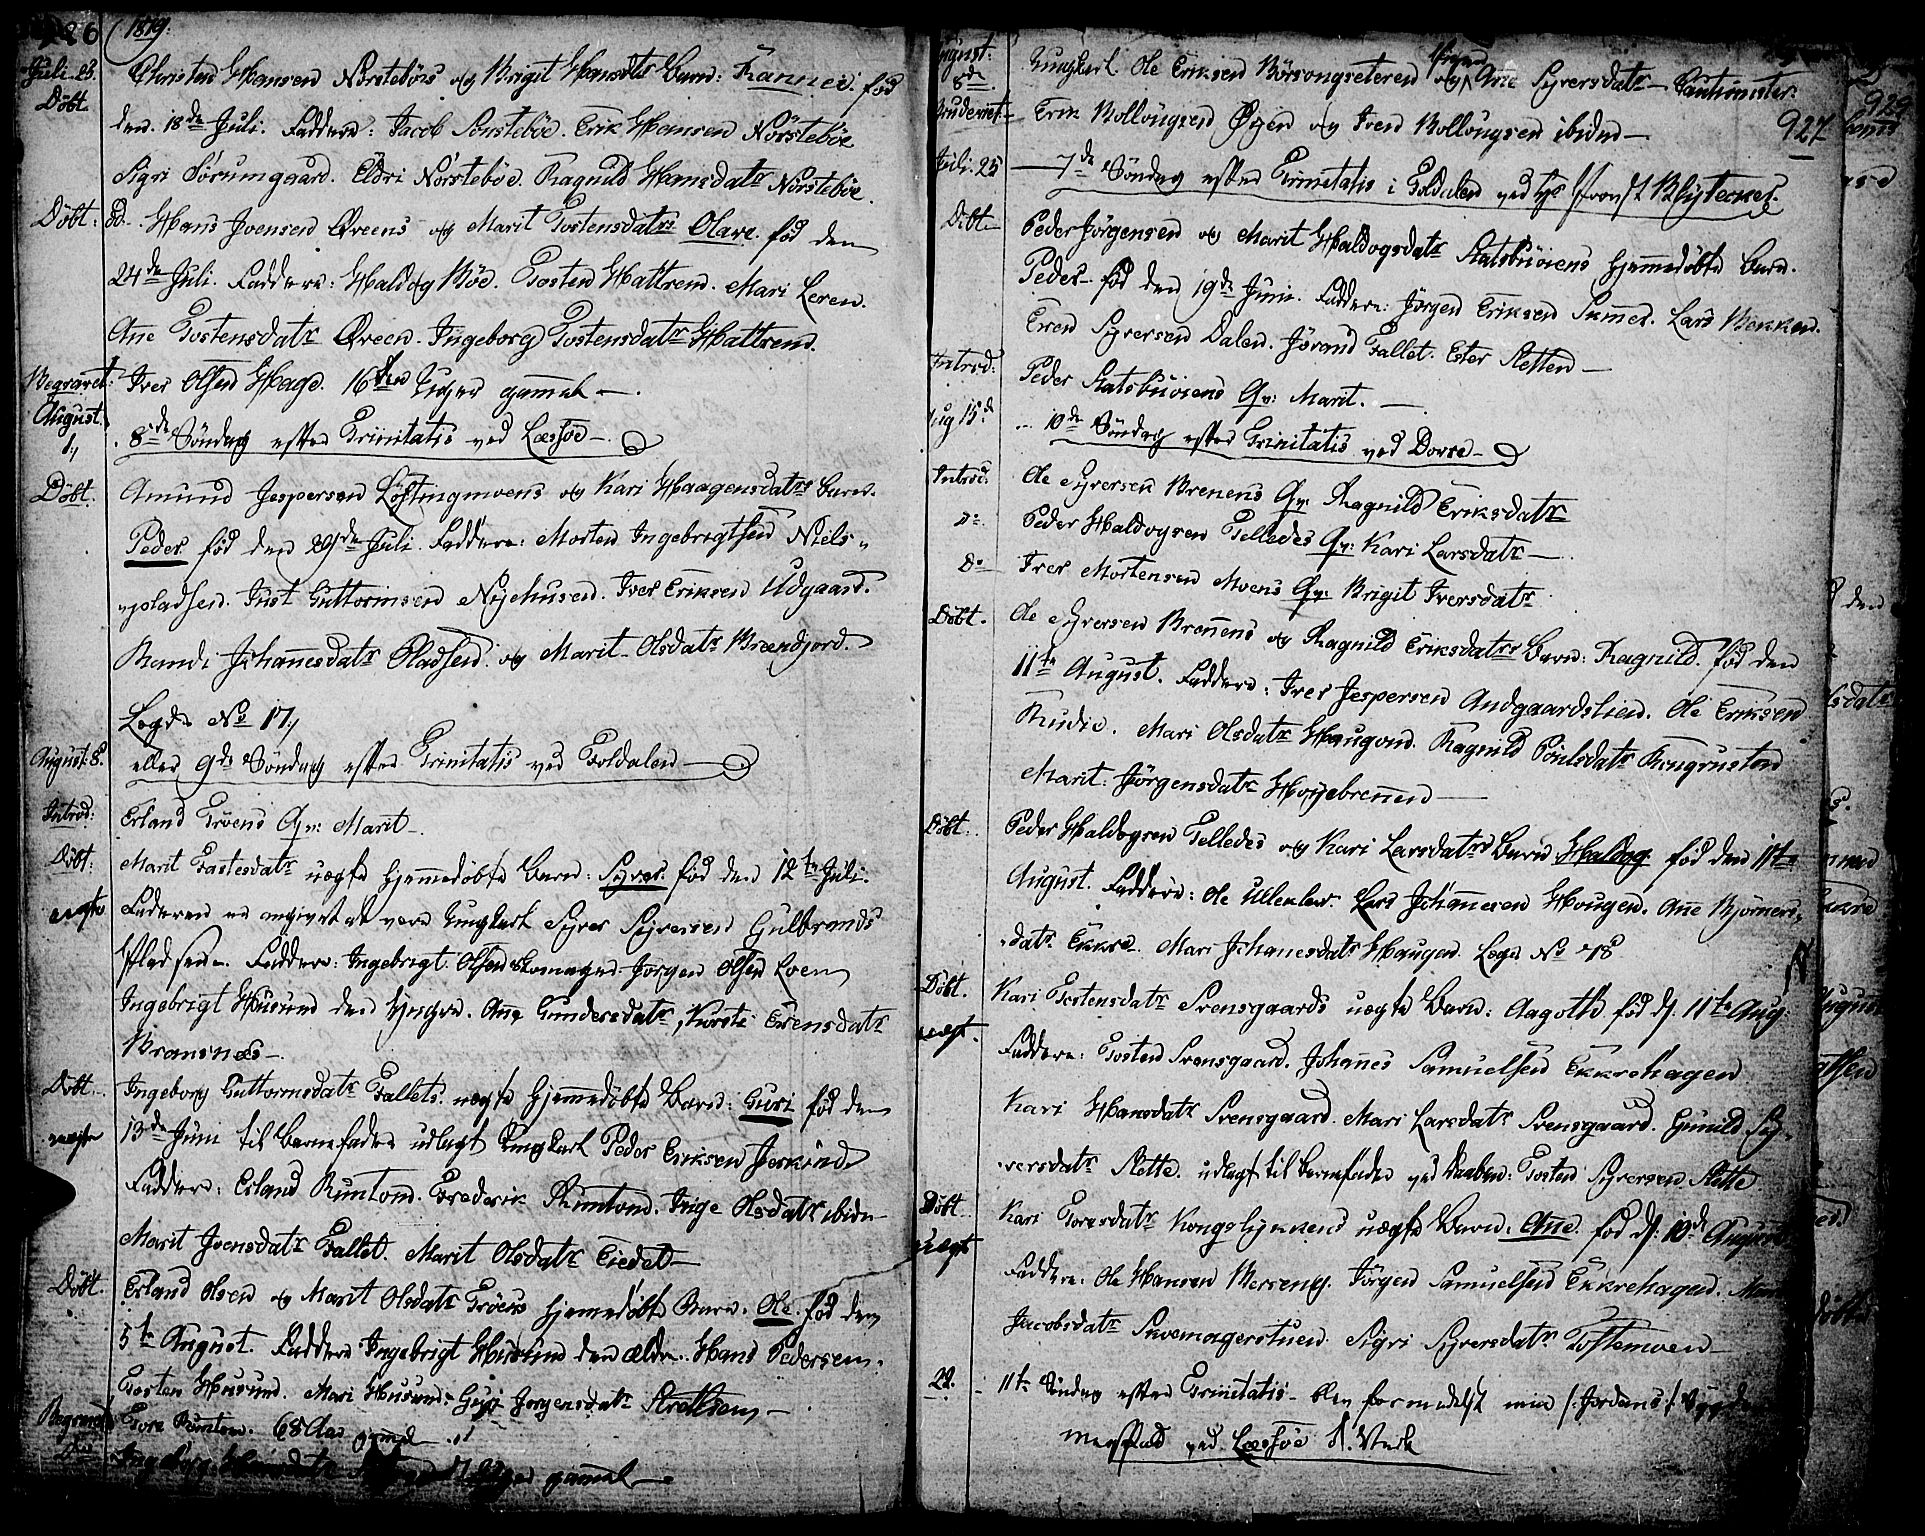 926 1819.
Juli 25. Christen Hansen Norstebøes og Brigit Hansdtr Barn: Rannei. fød
Døbt den 18de Juli. Faddere: Jacob Sønstebøe. Erik Hansen Norstebøe
Sigri Sørumgaard. Eldri Norstebøe. Ragnild Hansdatr Norstebøe.
Døbt: do. Hans Joensen Øveens og Marit Tostensdatrs Olave. fød den
24de Juli. Faddere: Haldog Bøe. Tosten Hattrem. Mari Leren.
Ane Tostensdatr Øveen. Ingeborg Tostensdatr Hattrem.
Begravet: Iver Olsen Hage. 16 Uger gammel —
August 1, 8de Søndag efter Trinitatis ved Læssøe —
Døbt. Amund Jespersen Løftingmoens og Kari Haagensdatrs Barn.
Peder fød den 29de Juli. Faddere: Morten Ingebrigtsen Niels-
-pladsen. Just Guttormsen Nyehusen. Iver Eriksen Udgaard.
Randi Johannesdatr Pladsen og Marit Olsdatr Brændjord.
Lægds No 17,
August: 8. eller 9de Søndag efter Trinitatis ved Foldalen —
Introd: Erland Grøens Qv: Marit —
Døbt: Marit Tostesdatr uægte hjemmedøbte Barn: Syver fød den 12te Juli.
uægte Faderen er angivet at være Ungkarl Syver Syversen Gulbrands
Pladsen. Faddere: Ingebrigt Olsen Jørgen Olsen Loen
Ingebrigt Husum den yngre. Ane Gundersdatr, Kirsti Evensdatr
Brænsnæs —
Døbt. Ingeborg Guttormsdatr Fallets uægte hjemmedøbte Barn: Guri fød den
uægte 13de Juni til Barnefader udlagt Ungkarl Peder Eriksen
Faddere: Erland Rumton. Frederik Rumton. Inge Olsdatr ibidn
Marit Joensdatr Fallet. Marit Olsdatr Eiedet —
Døbt. Erland Olsen og Marit Olsdatr Grøens hjemmedøbte Barn. Ole. fød den
5te August. Faddere Ingebrigt Husum den ældre. Hans Pedersen.
Tosten Husum. Mari Husum. Guri Jørgensdatr Strættsen —
Begravet Tore Rumton. 68 Aar gammel
Do Ingeborg gammel —
August: 8de Ungkarl Ole Eriksen Børsongseteren og Pigen Ane Syversdatr — Cautionister:
Brudeviet — Erik Bollongsen Øyen og Iven Bollongsen ibidem —
927
929
Juli: 25 — 7de Søndag efter Trinitatis i Foldalen ved Hr Provst Blytecker.
Døbt — Peder Jørgensen og Marit Haldogsdatr Statsbuøiens hjemmedøbte Barn.
Peder fød den 19de Juni. Faddere: Jørgen Eriksen Lars Bekken.
Even Syversen Dalen. Jørand Fallet. Ester Sletten —
Introd: Peder Statsbuøiens Qv: Marit. —
Aug 15de 10de Søndag efter Trinitatis ved Dovre —
Introd. Ole Syversen Brenens Qv. Ragnild Eriksdatr
Do. Peder Haldogsen Telledes Qv: Kari Larsdatr —
Do Iver Mortensen Moens Qv: Brigit Iversdatr
Døbt. Ole Syversen Brenens og Ragnild Eriksdatrs Barn: Ragnild. fød den
11te August. Faddere: Iver Jespersen Andgaardslien. Ole Eriksen
Rudie. Mari Olsdatr Haugom. Ragnild Poulsdatr Rougrusten
Marit Jørgensdatr Hovebrenen —
Døbt. Peder Haldogsen Telledes og Kari Larsdatrs Barn Haldog fød den 11te
August. Faddere: Ole Ullenhov. Lars Johannesen Hougen. Ane Bjørners-
-datr Ekkre. Mari Johanesdatr Haugen Lægd No 18
Døbt. Kari Tostensdatr Svensgaards uægte Barn: Aagothe fød d. 11te Aug:
uægt. Faddere: Tosten Svensgaard. Johannes Samuelsen Ekkrehagen
Kari Hansdatr Svensgaard. Mari Larsdatr Svensgaard. Gunild Sy-
-versdatr Slette. udlagt til Barnefader ved Daaben: Tosten Syversen Slette
Døbt Kari Toresdatr Kongslynens uægte Barn. Ane. fød d. 10de August
uægt Faddere: Ole Hansen Jørgen Samuelsen Ekkrehagen. Mari
Jacobsdatr Skomagerstuen. Sigri Syversdatr Toftemoen —
22. — 11te Søndag efter Trinitatis — blev formedelst min /: Jordans :/ Sygdom
ved Læssøe